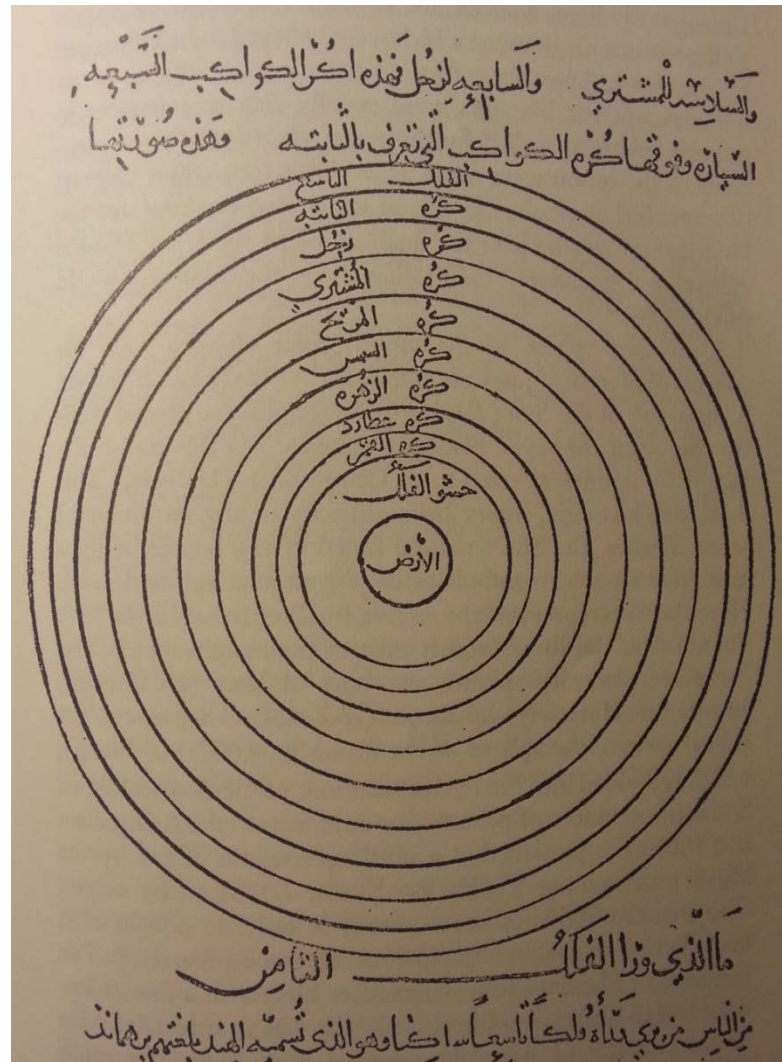 والسادسه للمشتري والسابعه لزحل فهذه اكر الكواكب السبعه
السياره وفوقها كره الكواكب التي تعرف بالثابته وهذه صورتها
الفلك التاسع
كره الثابته
كره زحل
كره المشتري
كره المريخ
كره الشمس
كره الزهره
كره عطارد
كره القمر
حشو الفلك
الأرض
ما الذي ورا الفلك الثامن
من الناس من وهو الذي تسميه الهند